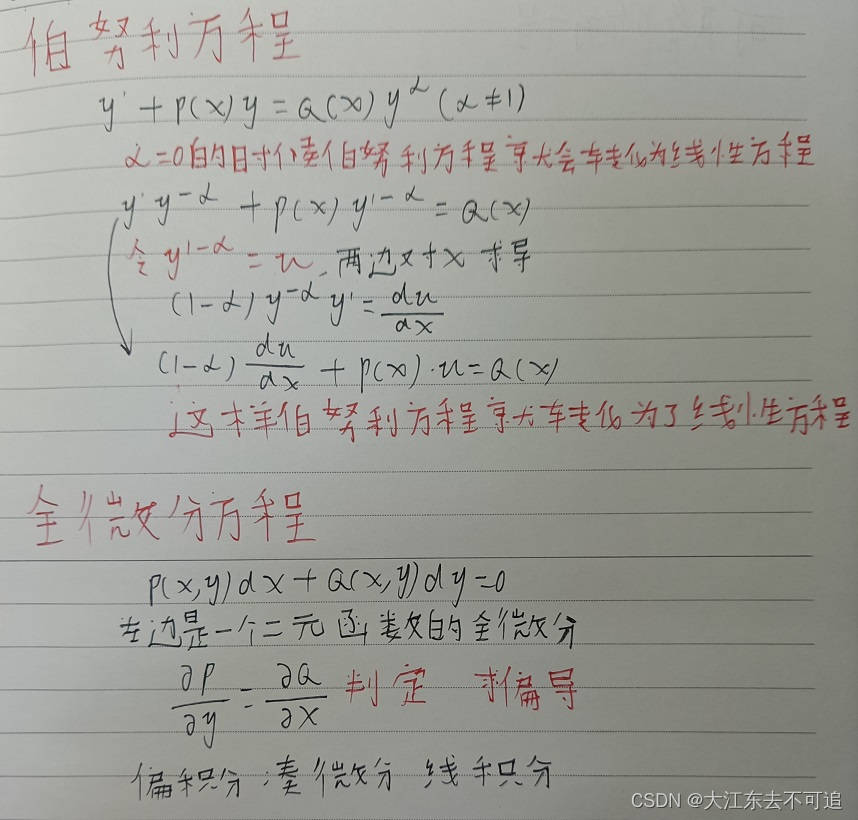 伯努利方程
y' + P(x)y = Q(x)y^α (α≠1)
α=0的时候伯努利方程就会转化为线性方程
y' y^{-α} + P(x) y^{1-α} = Q(x)
令 y^{1-α} = u, 两边对x求导
(1-α) y^{-α} y' = du/dx
(1-α) du/dx + P(x)·u = Q(x)
这样伯努利方程就转化为了线性方程
全微分方程
P(x,y)dx+Q(x,y)dy=0
左边是一个二元函数的全微分
∂P/∂y = ∂Q/∂x 判定 求偏导
偏积分 凑微分 线积分
CSDN @大江东去不可追